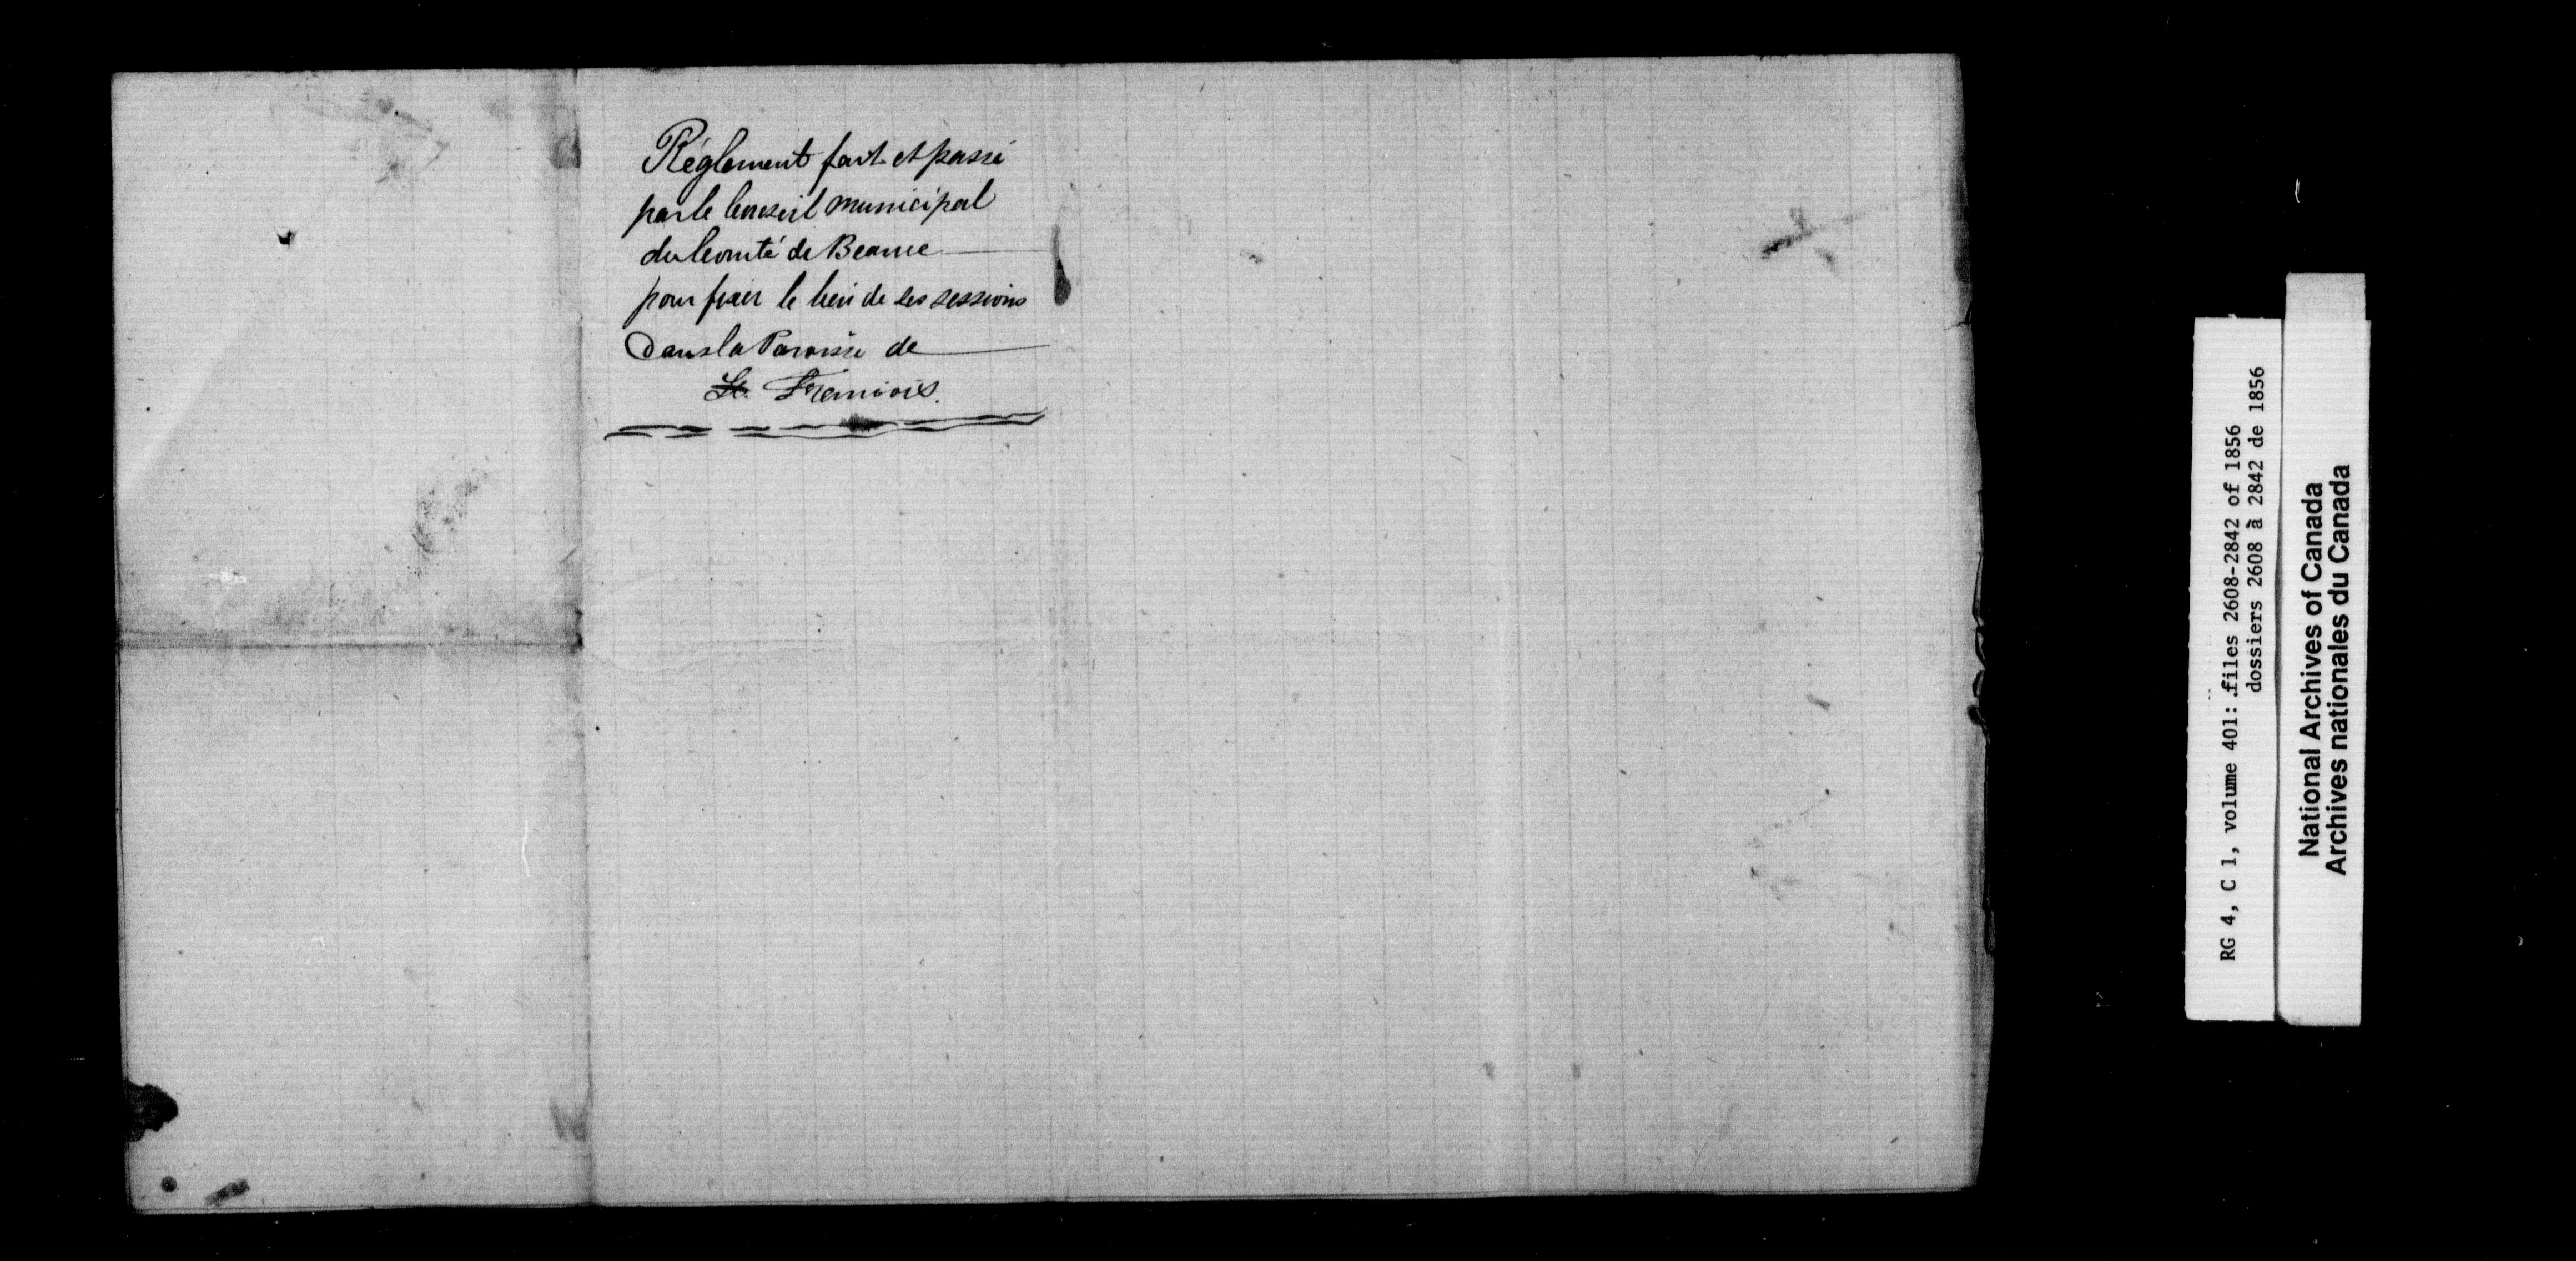 Réglement fait et passé
par le Conseil municipal
du Comté de Beauce
pour fixer le lieu de ses sessions
Dans la Paroisse de
St. Francois.
RG 4, C 1, volume 401: files 2608-2842 of 1856
dossiers 2608 à 2842 de 1856
National Archives of Canada
Archives nationales du Canada